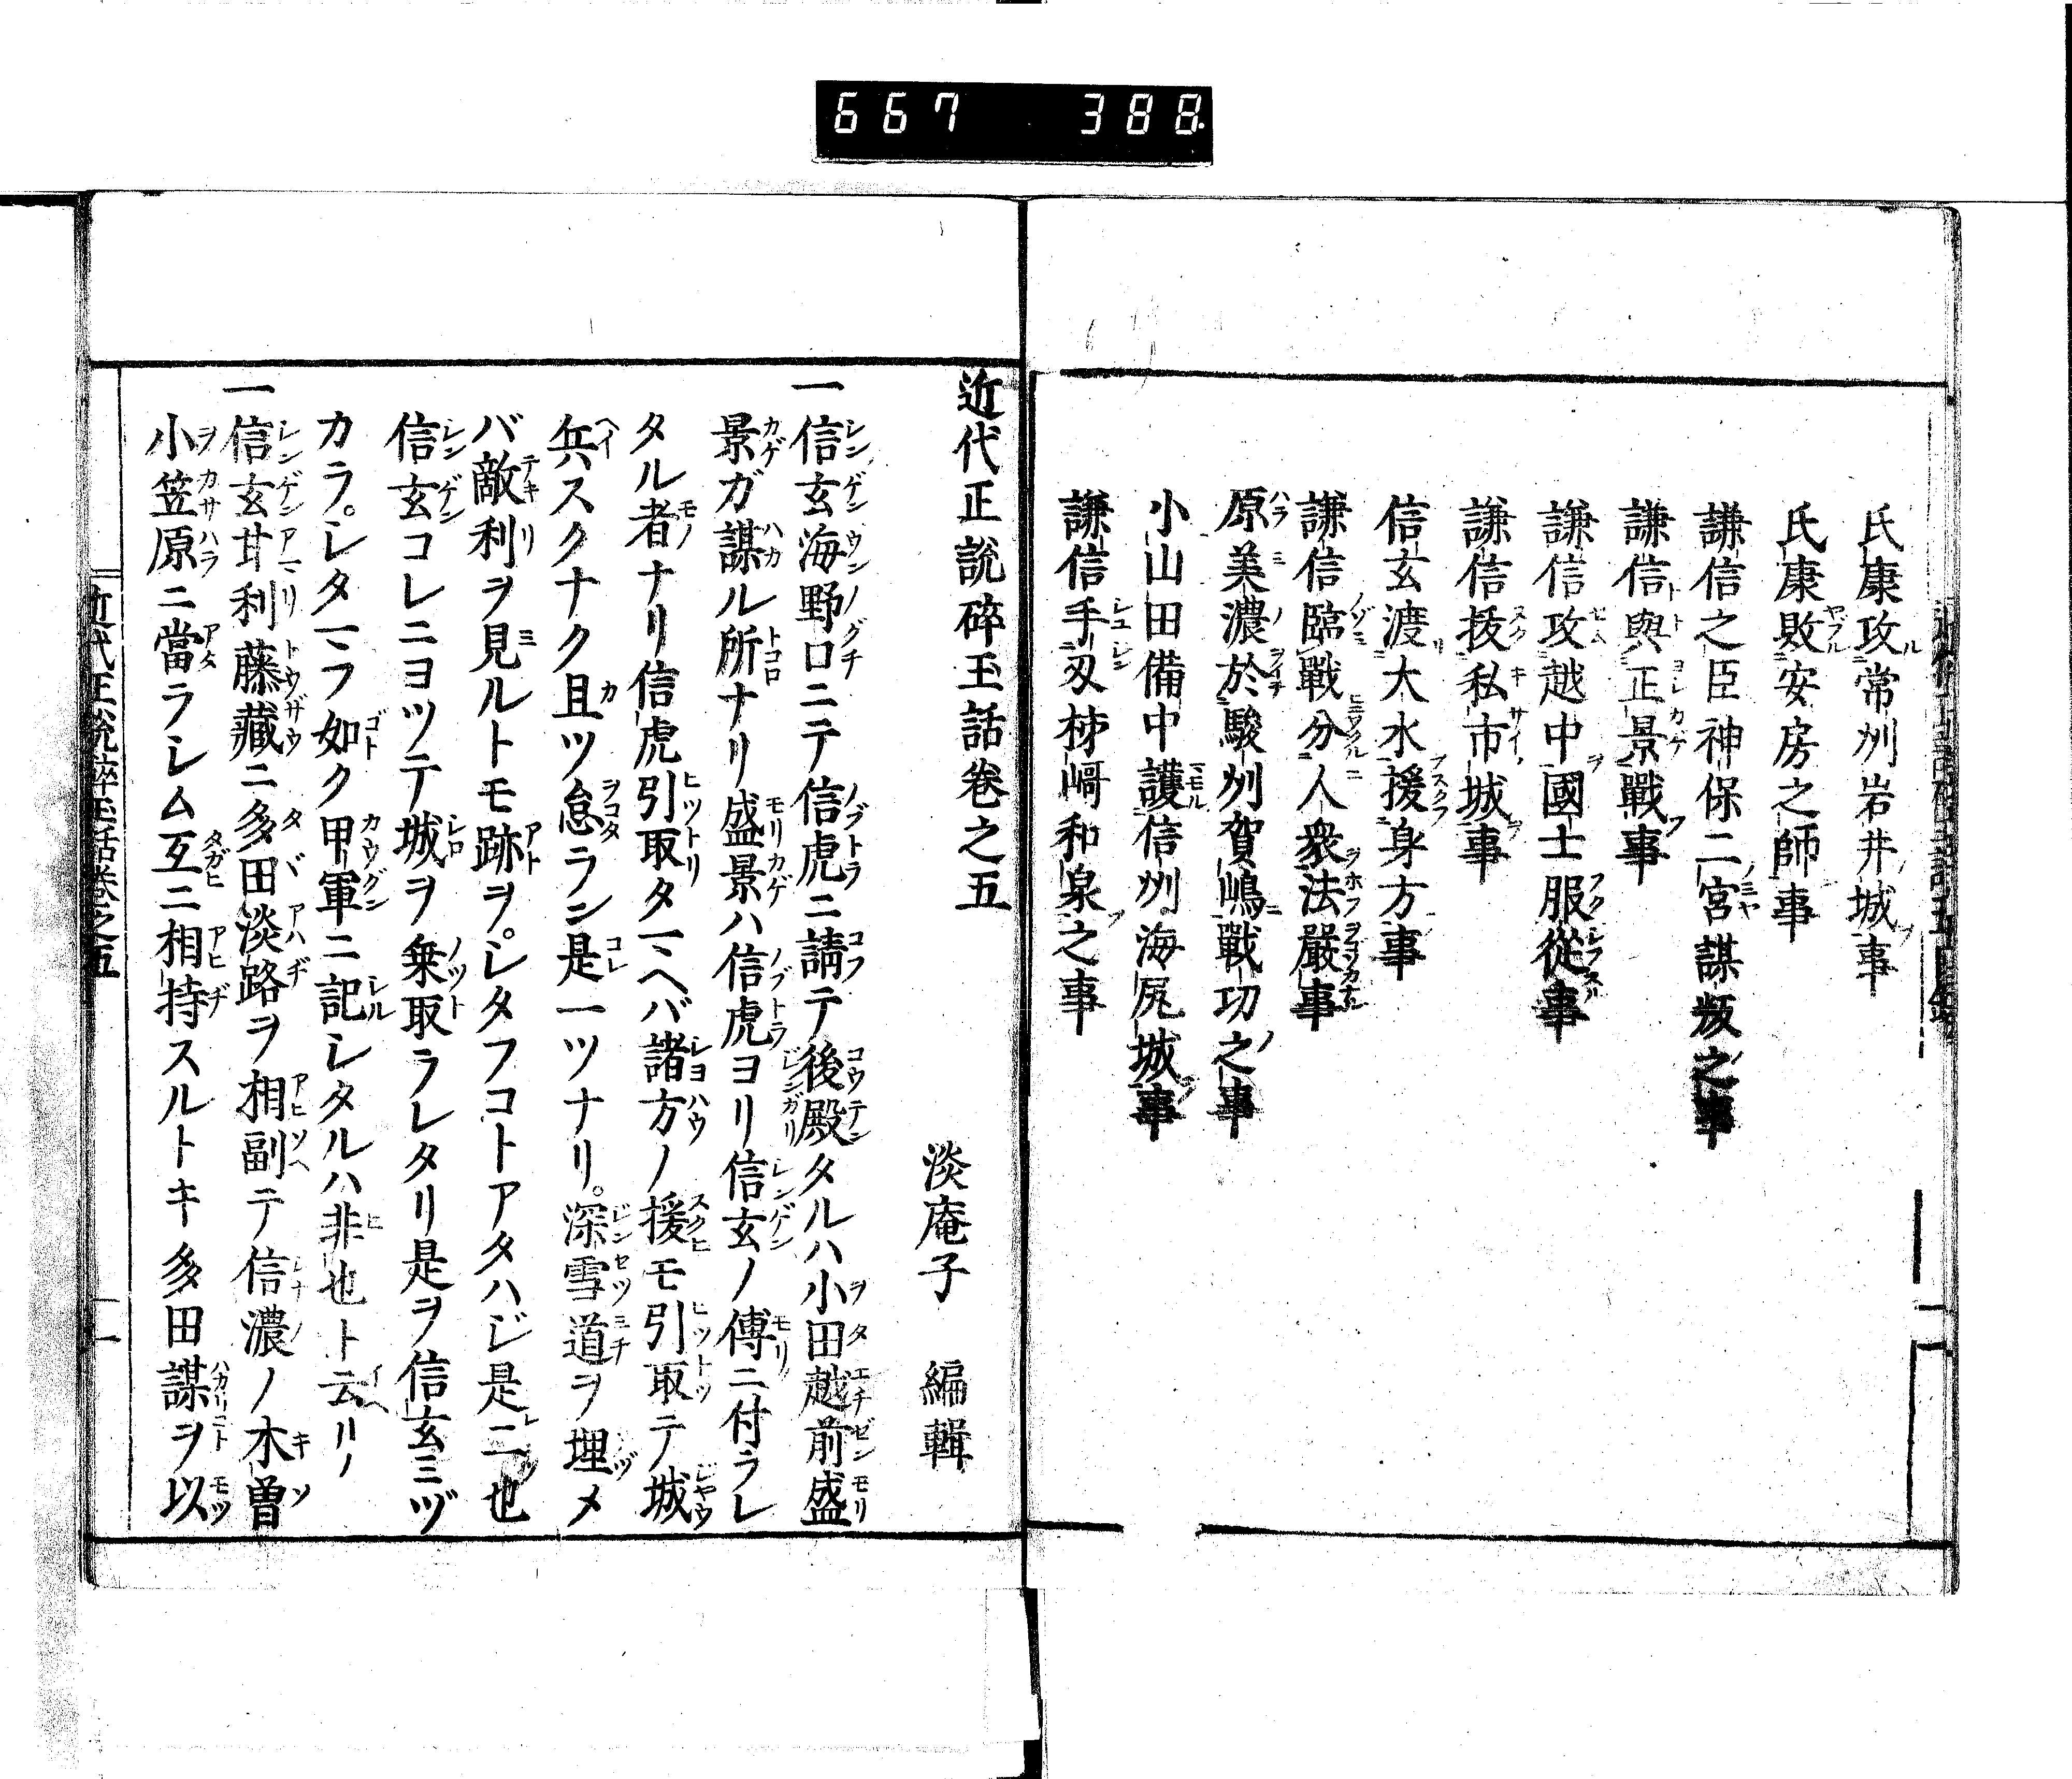 667 388
氏康攻常州岩井城事
氏康敗安房之師事
謙信之臣神保二宮謀叛之事
謙信與正景戰事
謙信攻越中國士服從事
謙信抜私市城事
信玄渡大水援身方事
謙信臨戰分人衆法嚴事
原美濃於駿州賀嶋戰功之事
小山田備中護信州海尻城事
謙信手刄柿﨑和泉之事
近代正說碎玉話卷之五
淡庵子 編輯
一信玄海野口ニテ信虎ニ請テ後殿タルハ小田越前盛
景ガ謀ル所ナリ盛景ハ信虎ヨリ信玄ノ傅ニ付ラレ
タル者ナリ信虎引取タマヘバ諸方ノ援モ引取テ城
兵スクナク且ツ怠ラン是一ツナリ。深雪道ヲ埋メ
バ敵利ヲ見ルトモ跡ヲ。シタフコトアタハジ是二也
信玄コレニヨツテ城ヲ乗取ラレタリ是ヲ信玄ミヅ
カラ。シタマフ如ク甲軍ニ記シタルハ非也ト云リ
一信玄甘利藤藏ニ多田淡路ヲ相副テ信濃ノ木曽
小笠原ニ當ラシム互ニ相持スルトキ多田謀ヲ以
近代正說碎玉話卷之五 一